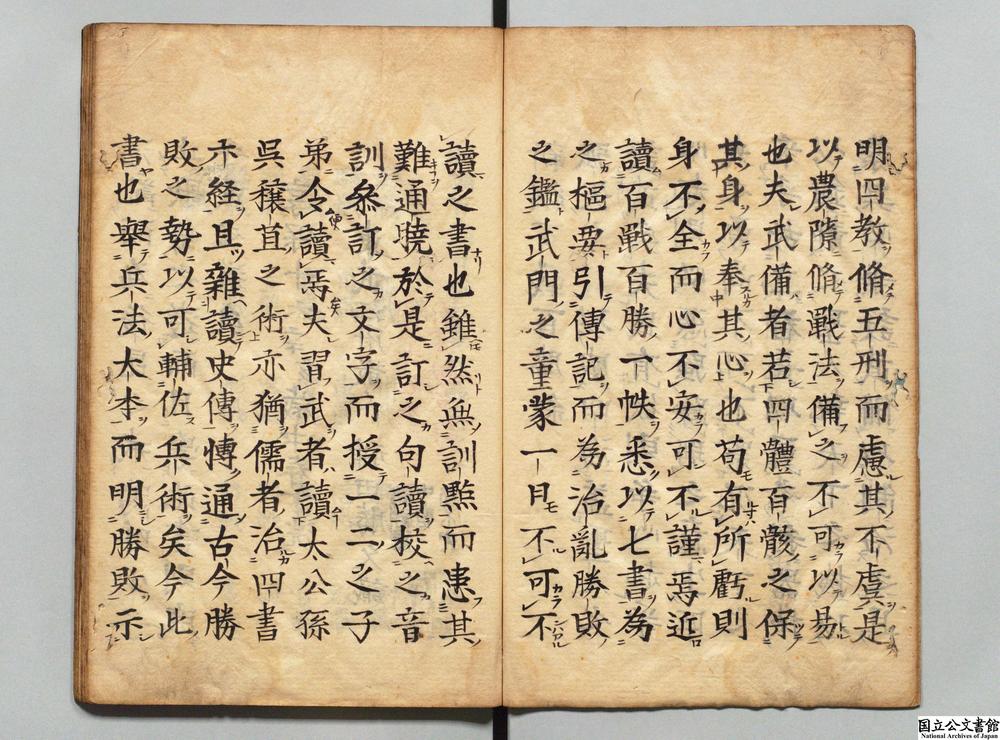 明四教脩五刑而慮其不虞是
以農隙脩戰法備之不可以易
也夫武備者若四體百骸之保
其身以奉其心也苟有所虧則
身不全而心不安可不謹焉近
讀百戰百勝一帙悉以七書為
之樞要引傳記而為治亂勝敗
之鑑武門之童蒙一日不可不
讀之書也雖然無訓點而患其
難通曉於是訂之句讀校之音
訓叅訂之文字而授一二之子
弟令讀焉夫習武者讀太公孫
吳穰苴之術亦猶儒者治四書
六経且雜讀史傳愽通古今勝
敗之勢以可輔佐兵術矣今此
書也舉兵法大本而明勝敗示
国立公文書館
National Archives of Japan